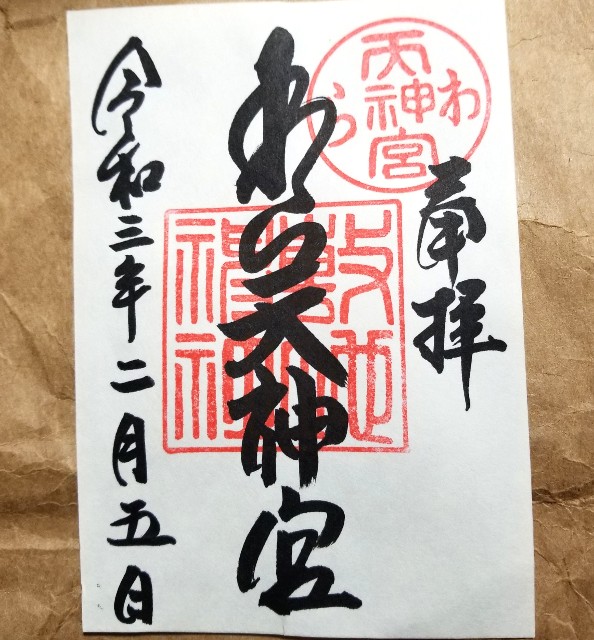 奉拝
わら
天神宮
わら天神宮
敷地
令和三年二月五日